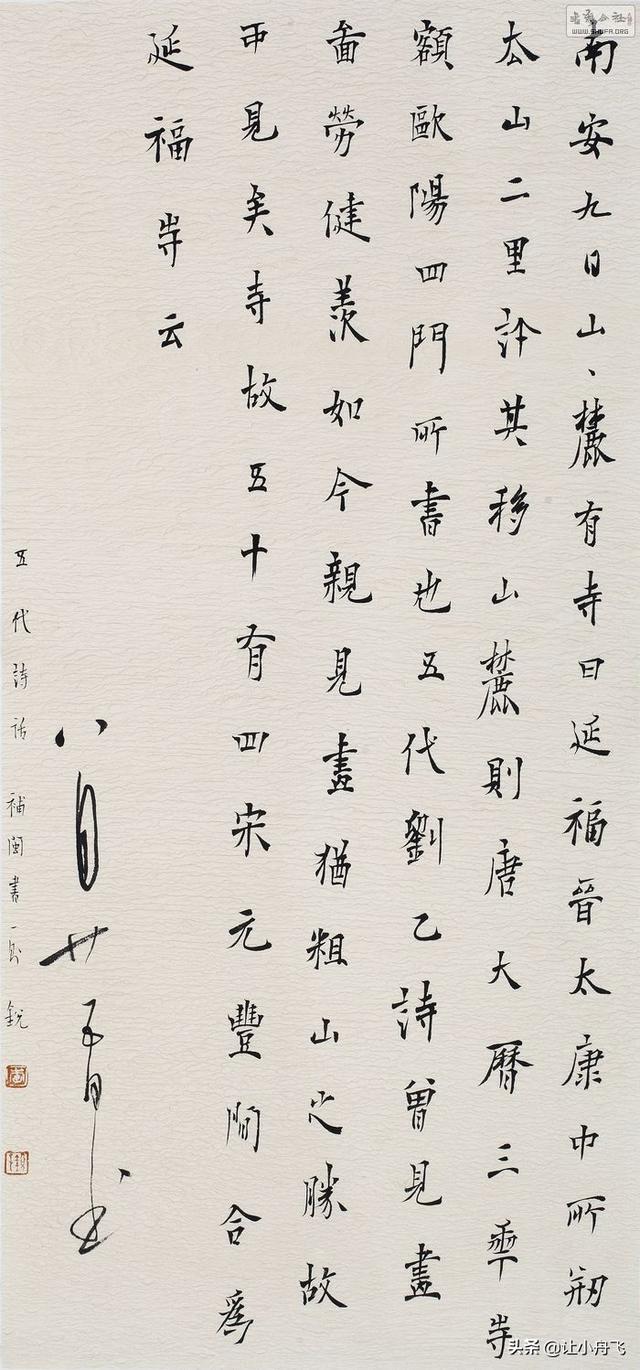 南安九日山、麓有寺曰延福晉太康中所剏
去山二里許其移山麓則唐大曆三季寺
額歐陽四門所書也五代劉乙詩曾見畫
圖勞健羨如今親見畫猶粗山之勝故
可見矣寺故五十有四宋元豐間合為
延福寺云
八月廿五日
五代詩話補閩書一則 銳
WWW.SHUFA.ORG
头条 @让小舟飞